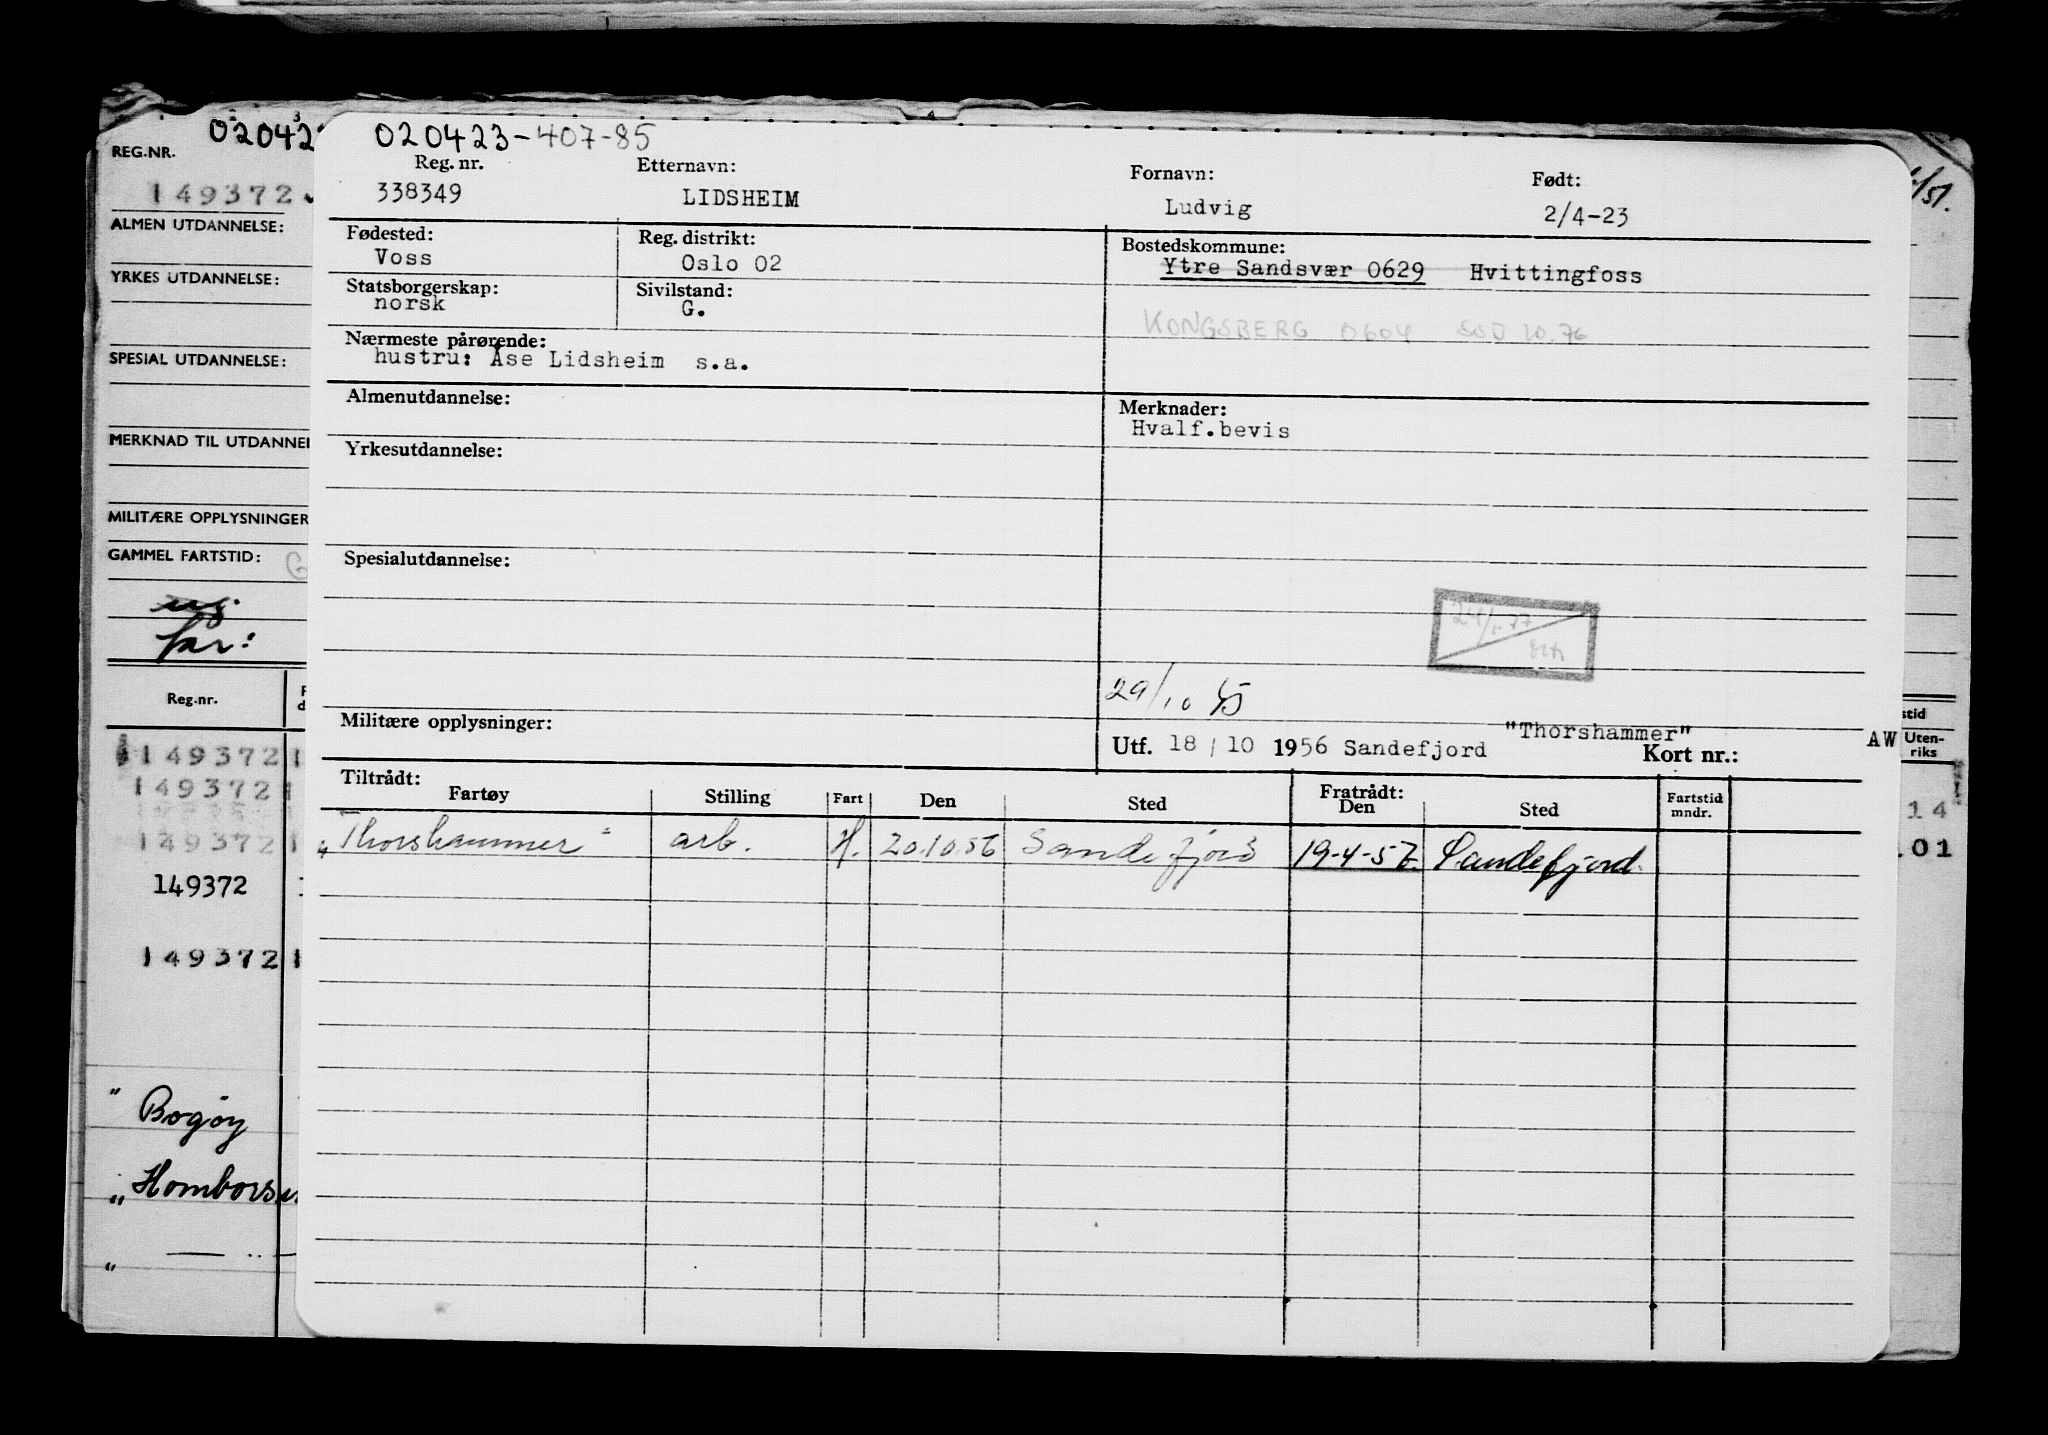 020423-407-85
Reg. nr. Etternavn: Fornavn: Født:
338349 LIDSHEIM Ludvig 2/4-23
Fødested: Reg. distrikt: Bostedskommune:
Voss Oslo 02 Ytre Sandsvær 0629 Hvittingfoss
Statsborgerskap: Sivilstand:
norsk G.
KONGSBERG 0604 10.76
Nærmeste pårørende:
hustru: Åse Lidsheim s.a.
Almenutdannelse: Merknader:
Hvalf.bevis
Yrkesutdannelse:
Spesialutdannelse:
29/10
Militære opplysninger:
"Thorshammer"
Utf. 18/10 1956 Sandefjord Kort nr.: AW
Tiltrådt: Fratrådt:
Fartøy Stilling Fart Den Sted Den Sted Fartstid mndr.
"Thorshammer" arb. H. 20.10.56 Sandefjord 19-4-57 Sandefjord
02042
REG.NR.
149372
ALMEN UTDANNELSE:
YRKES UTDANNELSE:
SPESIAL UTDANNELSE:
MERKNAD TIL UTDANNE
MILITÆRE OPPLYSNINGER
GAMMEL FARTSTID: G
far:
Reg.nr.
149372 1
149372 1
149372 1
149372
149372 1
" Bogøy
" Hombors
"
/51.
stid
Uten-
riks
14
.01